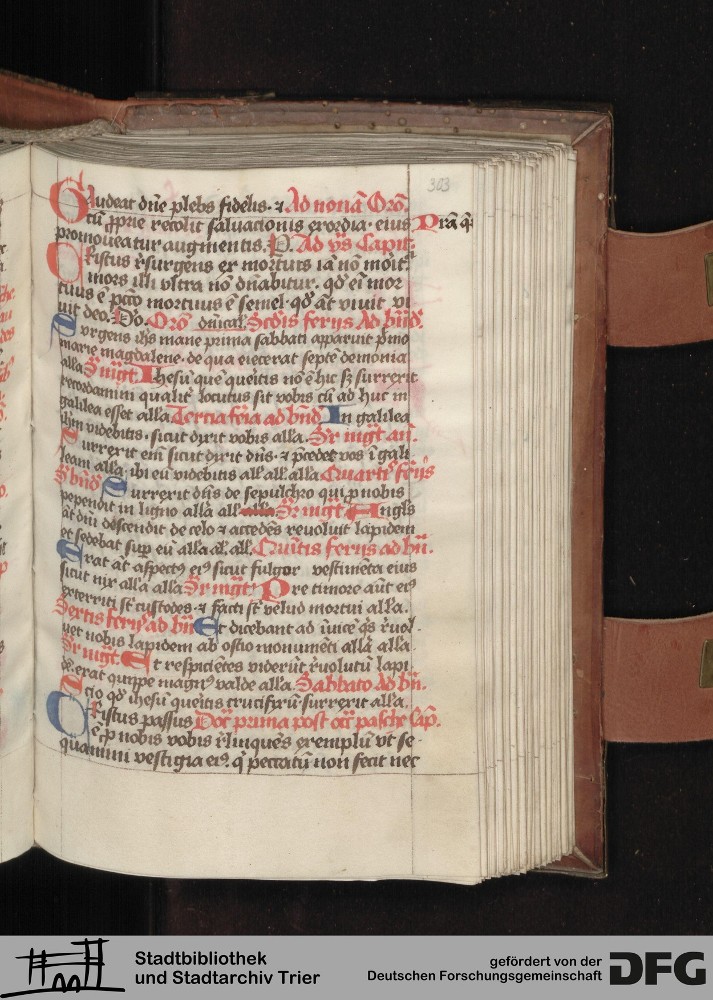 303
Gaudeat dn̄e plebs fidelis · ⁊ Ad nonā Orō.
cū ꝓprie recolit saluacionis exordia · eius Prā q̄
promoueatur augmentis. P. Ad vs̄ Capit̄.
Cristus r̄surgens ex mortuis iā nō moīt̄
mors illi vltra nō dn̄abitur. qd̓ eī mor
tuus ē pctō mortuus ē semel · qd̓ āt viuit vi
uit deo. Orō dn̄ical. Scd̓is ferijs Ad bn̄d.
Surgens ihs̄ mane prima sabbati apparuit p̄mo
marie magdalene · de qua eiecerat septē demonia
alla Sr̄ mgt̄. Ihesū quē queritis nō ē hic sꝫ surrexit
recordamini qualit̄ locutus sit vobis cū ad huc in
galilea esset alla Tercia fēia ad bn̄d In galilea
ihm̄ videbitis · sicut dixit vobis alla. Sr̄ mgt̄ an̄.
Surrexit em̄ sicut dixit dn̄s · ⁊ p̄cedet vos ī gali
leam alla ibi eū videbitis all̄ all̄ alla Quartis ferijs
Ad bn̄d Surrexit dn̄s de sepulchro qui p nobis
pependit in ligno alla all̄ Sr̄ mgt̄ Angl̄s
āt dn̄i descendit de celo ⁊ accedēs reuoluit lapidem
et sedebat sup eū alla al̄ all̄. Quītis ferijs ad bn̄.
Erat āt aspectꝰ eiꝰ sicut fulgor vestimēta eius
sicut nix alla alla Sr̄ mgt̄ Pre timore aūt eiꝰ
exterriti st̄ custodes · ⁊ facti st̄ velud mortui alla.
Sextis ferijs ad bn̄ Et dicebant ad īuicē qs̄ r̄uol
uet nobis lapidem ab ostio monumēti alla alla
Sr̄ mgt̄. Et respiciētes viderūt r̄uolutū lapi
dē. erat quippe magnꝰ valde alla. Sabbato Ad bn̄.
Scio qd̓ ihesū queritis crucifixū surrexit alla.
Cristus passus Doc̄ prima post oct̄ pasche Cap̄.
ē p nobis vobis r̄linquēs exemplū vt se-
quamini vestigia eiꝰ. q̄ peccatū non fecit nec
Stadtbibliothek
und Stadtarchiv Trier
gefördert von der
Deutschen Forschungsgemeinschaft
DFG